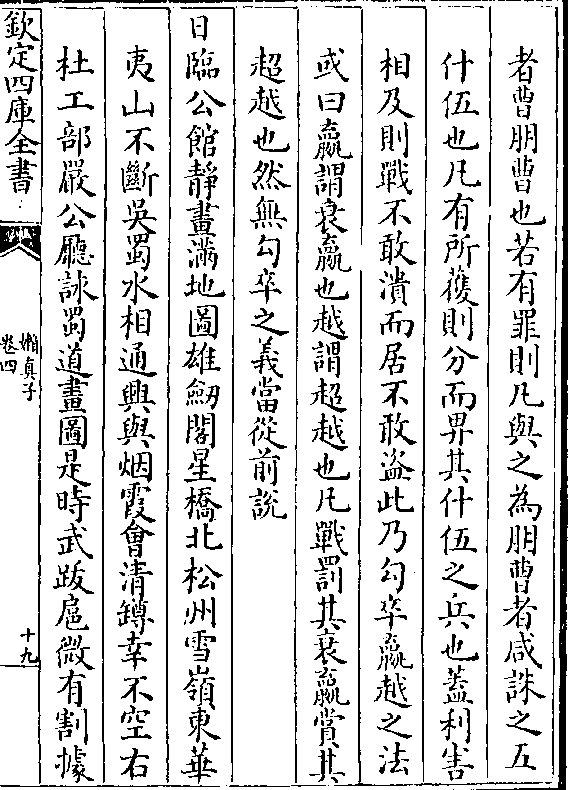 者曹朋曹也若有罪則凡與之為朋曹者咸誅之五
什伍也凡有所獲則分而畀其什伍之兵也蓋利害
相及則戰不敢潰而居不敢盗此乃勾卒嬴越之法
或曰嬴謂衰嬴也越謂超越也凡戰罰其衰嬴賞其
超越也然無勾卒之義當從前說
日臨公館靜畫滿地圖雄劒閣星橋北松州雪嶺東華
夷山不斷吳蜀水相通興與烟霞會清罇幸不空右
杜工部嚴公廳詠蜀道畫圖是時武跋扈微有割據
欽定四庫全書
嬾真子
卷四
十九